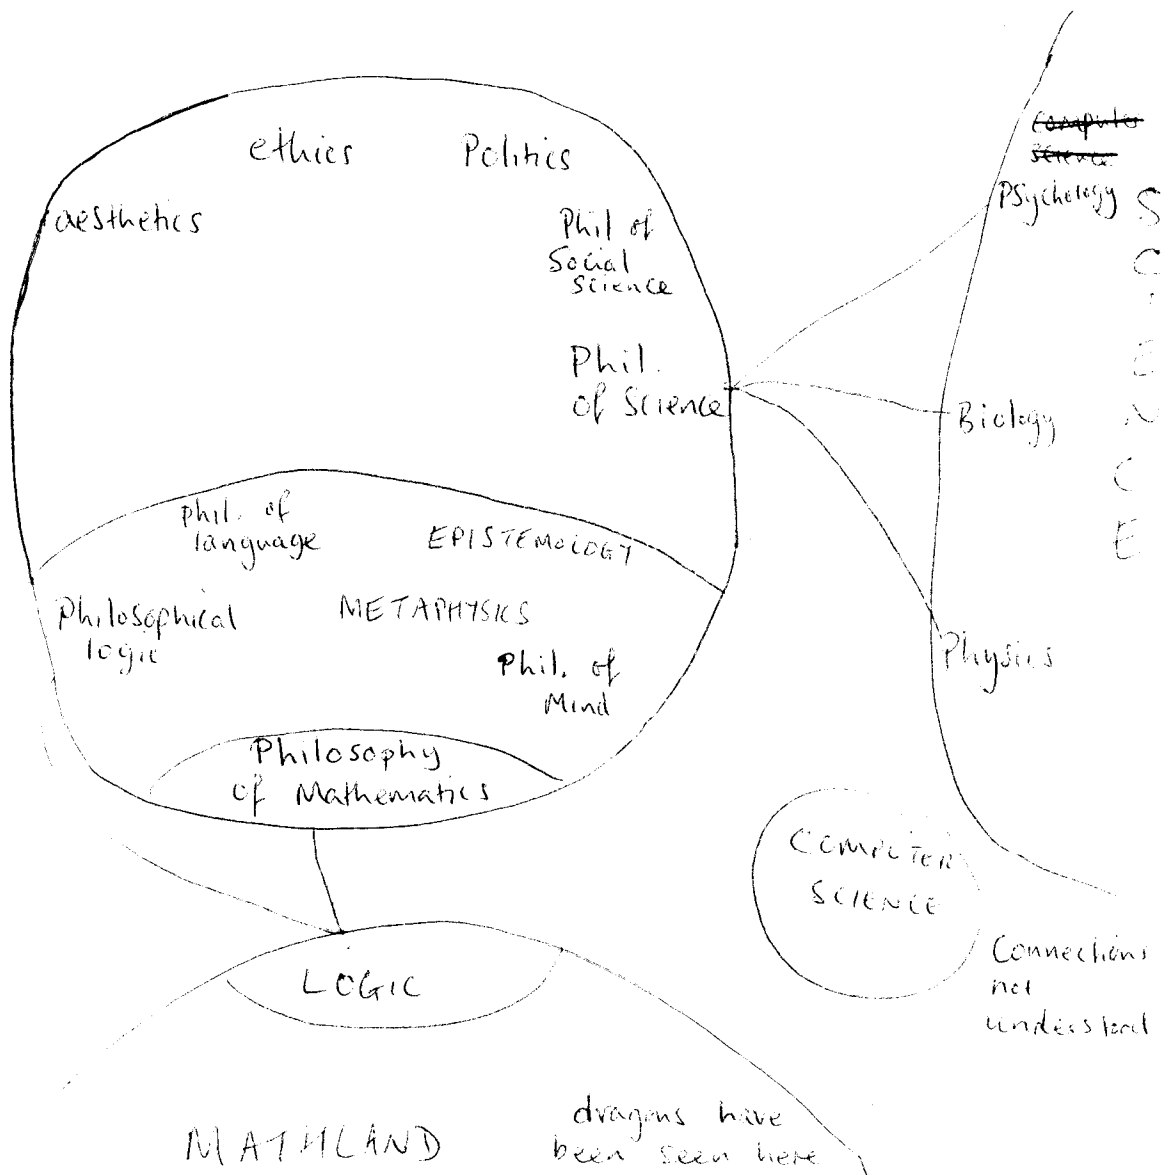 ethics
Politics
aesthetics
Phil of
Social
science
Phil.
of Science
phil. of
language
EPISTEMOLOGY
Philosophical
logic
METAPHYSICS
Phil. of
Mind
Philosophy
of Mathematics
LOGIC
MATHLAND
dragons have
been seen here
computer
science
Psychology
Biology
Physics
SCIENCE
COMPUTER
SCIENCE
Connections
not
understood